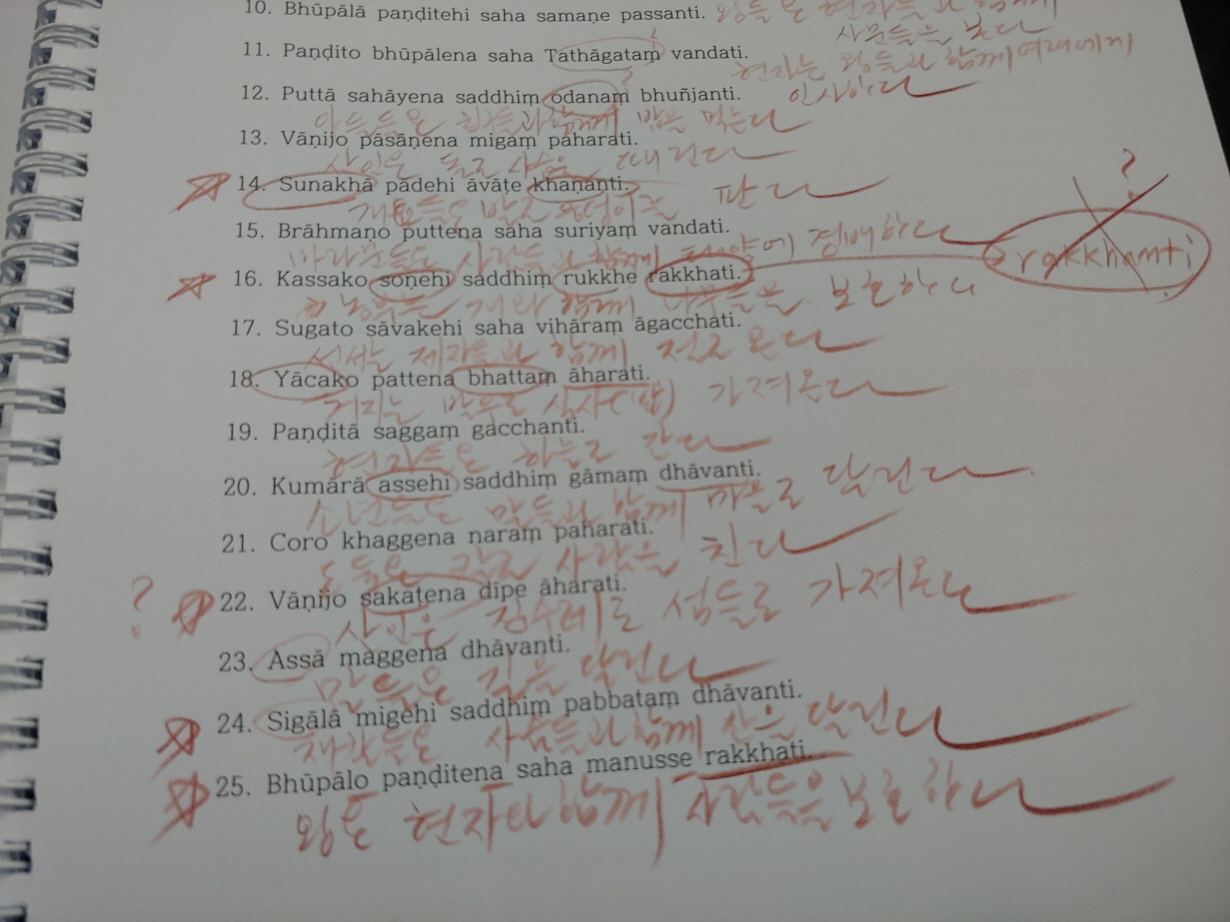 10. Bhūpālā paṇḍitehi saha samaṇe passanti. 왕들은 현자들과 함께
사문들을 본다
11. Paṇḍito bhūpālena saha Tathāgataṃ vandati.
현자는 왕들과 함께 여래에게
인사한다
12. Puttā sahāyena saddhiṃ odanaṃ bhuñjanti.
아들들은 친구들과 함께 밥을 먹는다
13. Vāṇijo pāsāṇena migaṃ paharati.
상인은 돌로 사슴을 때린다
14. Sunakhā pādehi āvāṭe khaṇanti.
개들은 발로 구덩이를 판다
15. Brāhmaṇo puttena saha suriyaṃ vandati.
함께 태양에 경배한다
?
16. Kassako soṇehi saddhiṃ rukkhe rakkhati.
rakkhaṃti
농부는 개와 함께 나무들을 보호한다
17. Sugato sāvakehi saha vihāraṃ āgacchati.
선서는 제자들과 함께 절로 온다
18. Yācako pattena bhattaṃ āharati.
거지는 발우로 식사(밥) 가져온다
19. Paṇḍitā saggaṃ gacchanti.
현자들은 하늘로 간다
20. Kumārā assehi saddhiṃ gāmaṃ dhāvanti.
소년들은 말들과 함께 마을로 달린다
21. Coro khaggena naraṃ paharati.
도둑은 칼로 사람을 친다
?
22. Vāṇijo sakaṭena dīpe āharati.
상인은 짐수레로 섬들로 가져온다
23. Assā maggena dhāvanti.
말들은 길을 달린다
24. Sigālā migehi saddhiṃ pabbataṃ dhāvanti.
재칼들은 사슴들과 함께 산을 달린다
25. Bhūpālo paṇḍitena saha manusse rakkhati.
왕은 현자와 함께 사람들을 보호한다